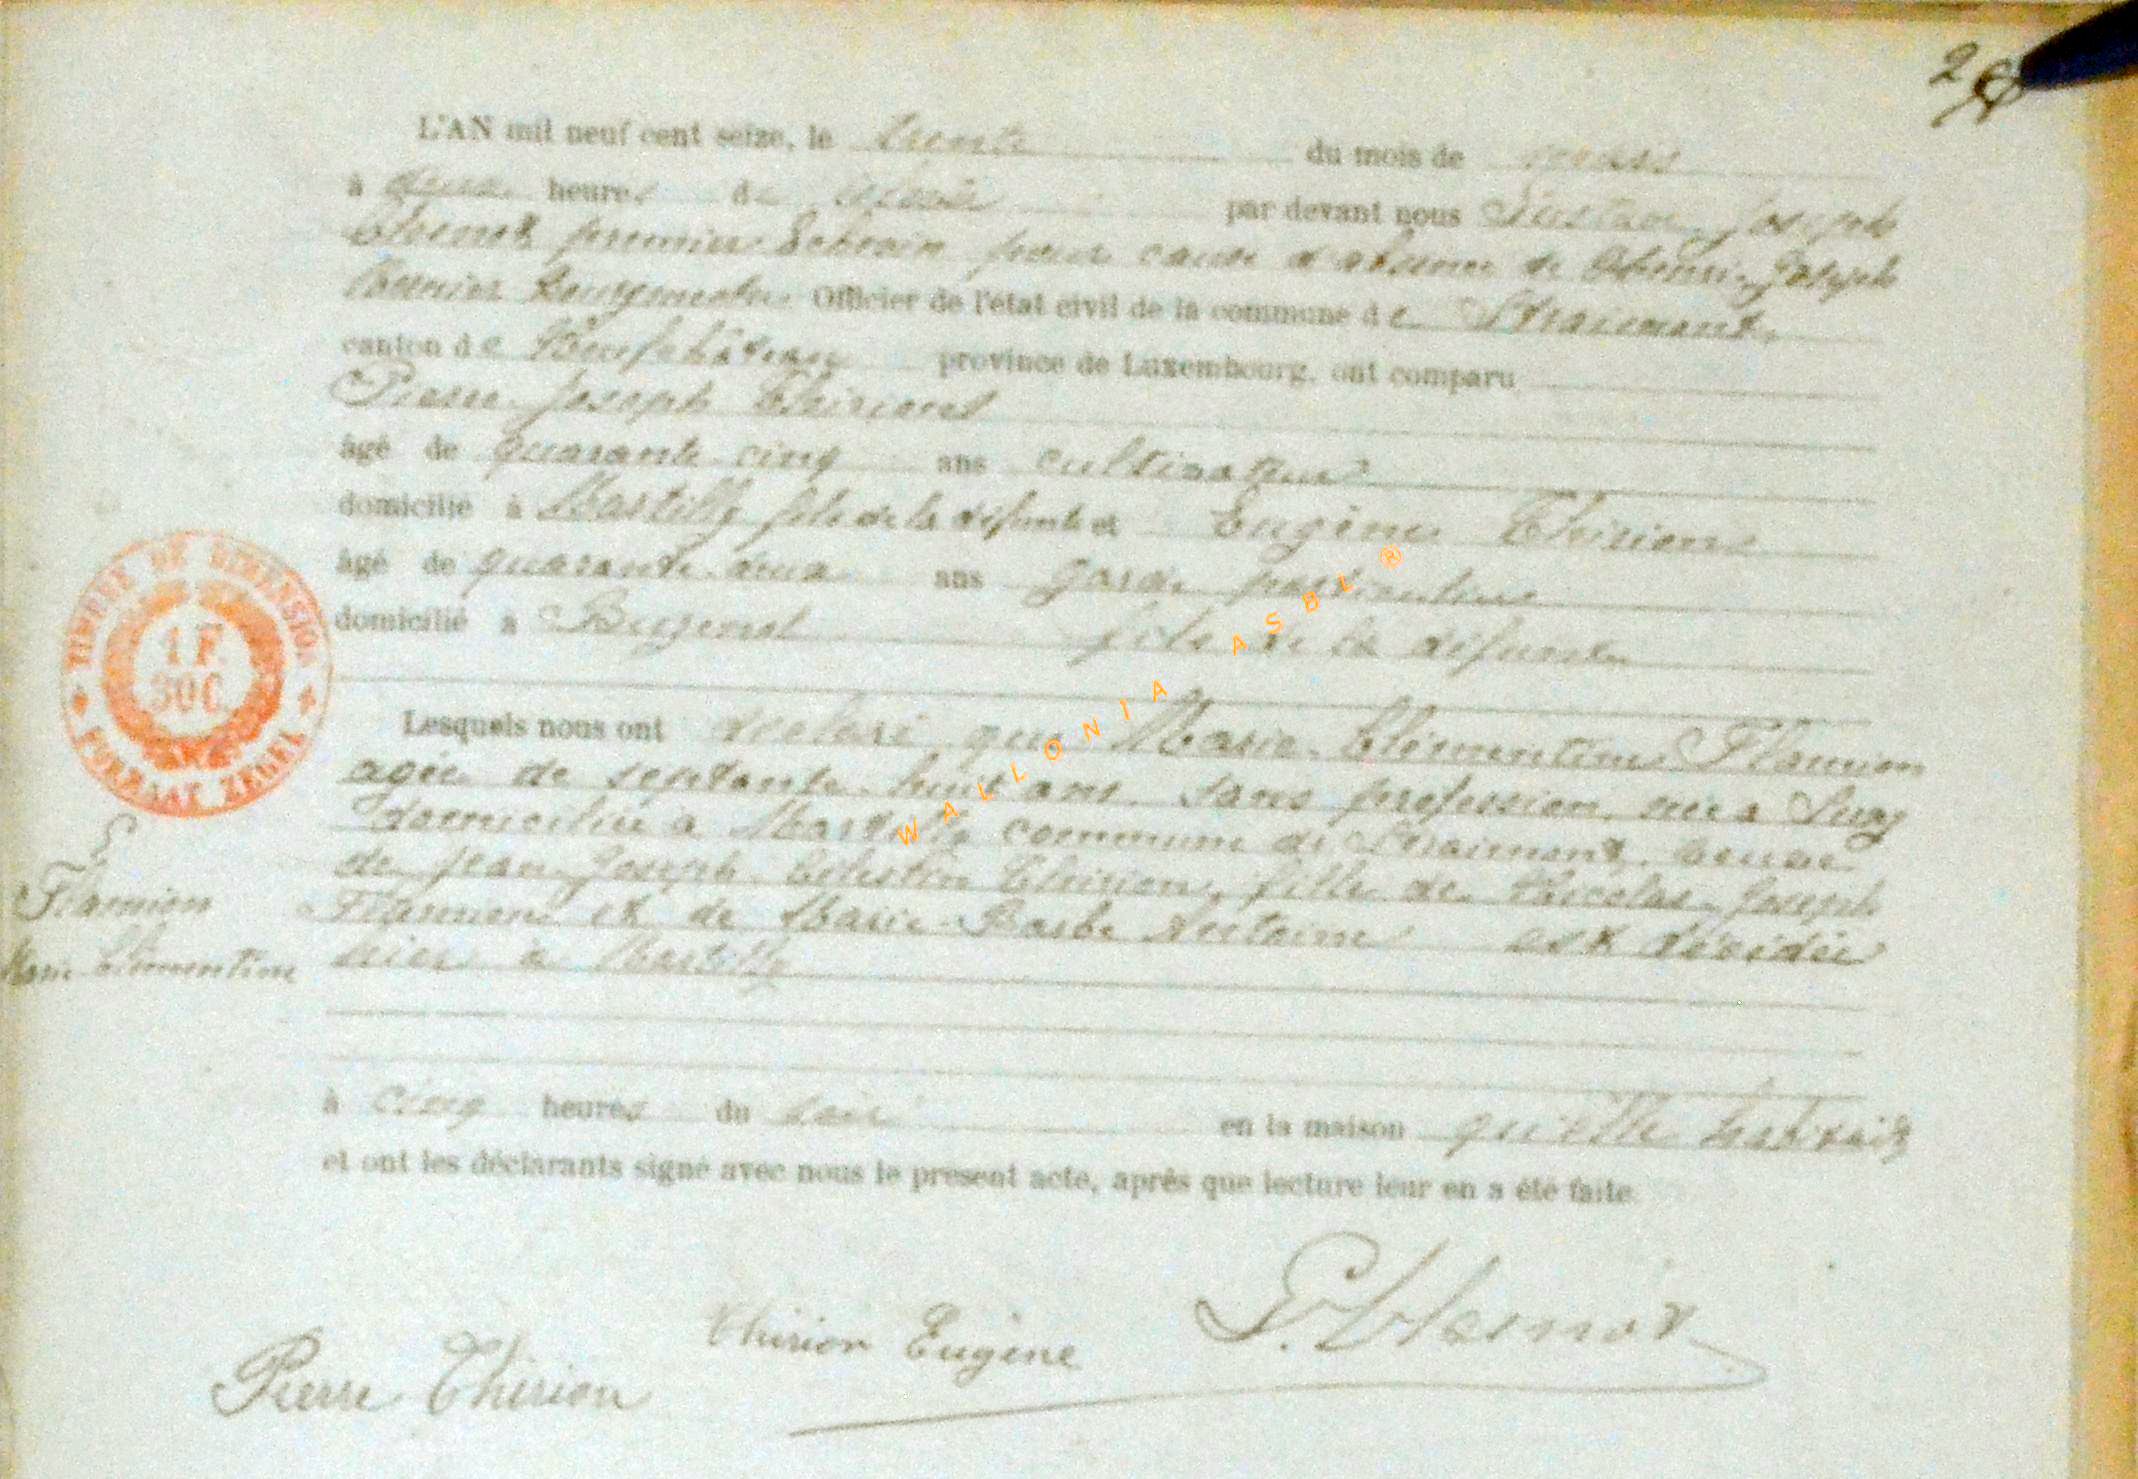 L'AN mil neuf cent seize, le trente du mois de mars
à deux heures de par devant nous Gustave Joseph
premier Echevin pour cause d'absence de Henri-Joseph
Bourgmestre Officier de l'état civil de la commune de Straimont,
canton de Neufchâteau province de Luxembourg, ont comparu
Pierre-Joseph Thirion
âgé de quarante-cinq ans cultivateur
domicilié à Martilly fils de la défunte et Eugène Thirion
âgé de quarante-deux ans garde particulier
domicilié à fils de la défunte
Lesquels nous ont déclaré que Marie-Clémentine Flamion
agée de septante-huit ans, sans profession, née à Suxy
domiciliée à Martilly commune de Straimont, veuve
de Jean-Joseph-Célestin Thirion, fille de Nicolas-Joseph
Flamion et de Marie-Barbe Antoine est décédée
hier à Martilly
à cinq heures du soir en la maison qu'elle habitait
et ont les déclarants signé avec nous le présent acte, après que lecture leur en a été faite.
TIMBRE DE DIMENSION
1 F.
30 C.
FORMAAT ZEGEL
Flamion
Marie Clémentine
Pierre Thirion
Thirion Eugène
WALLONIA ASBL ®